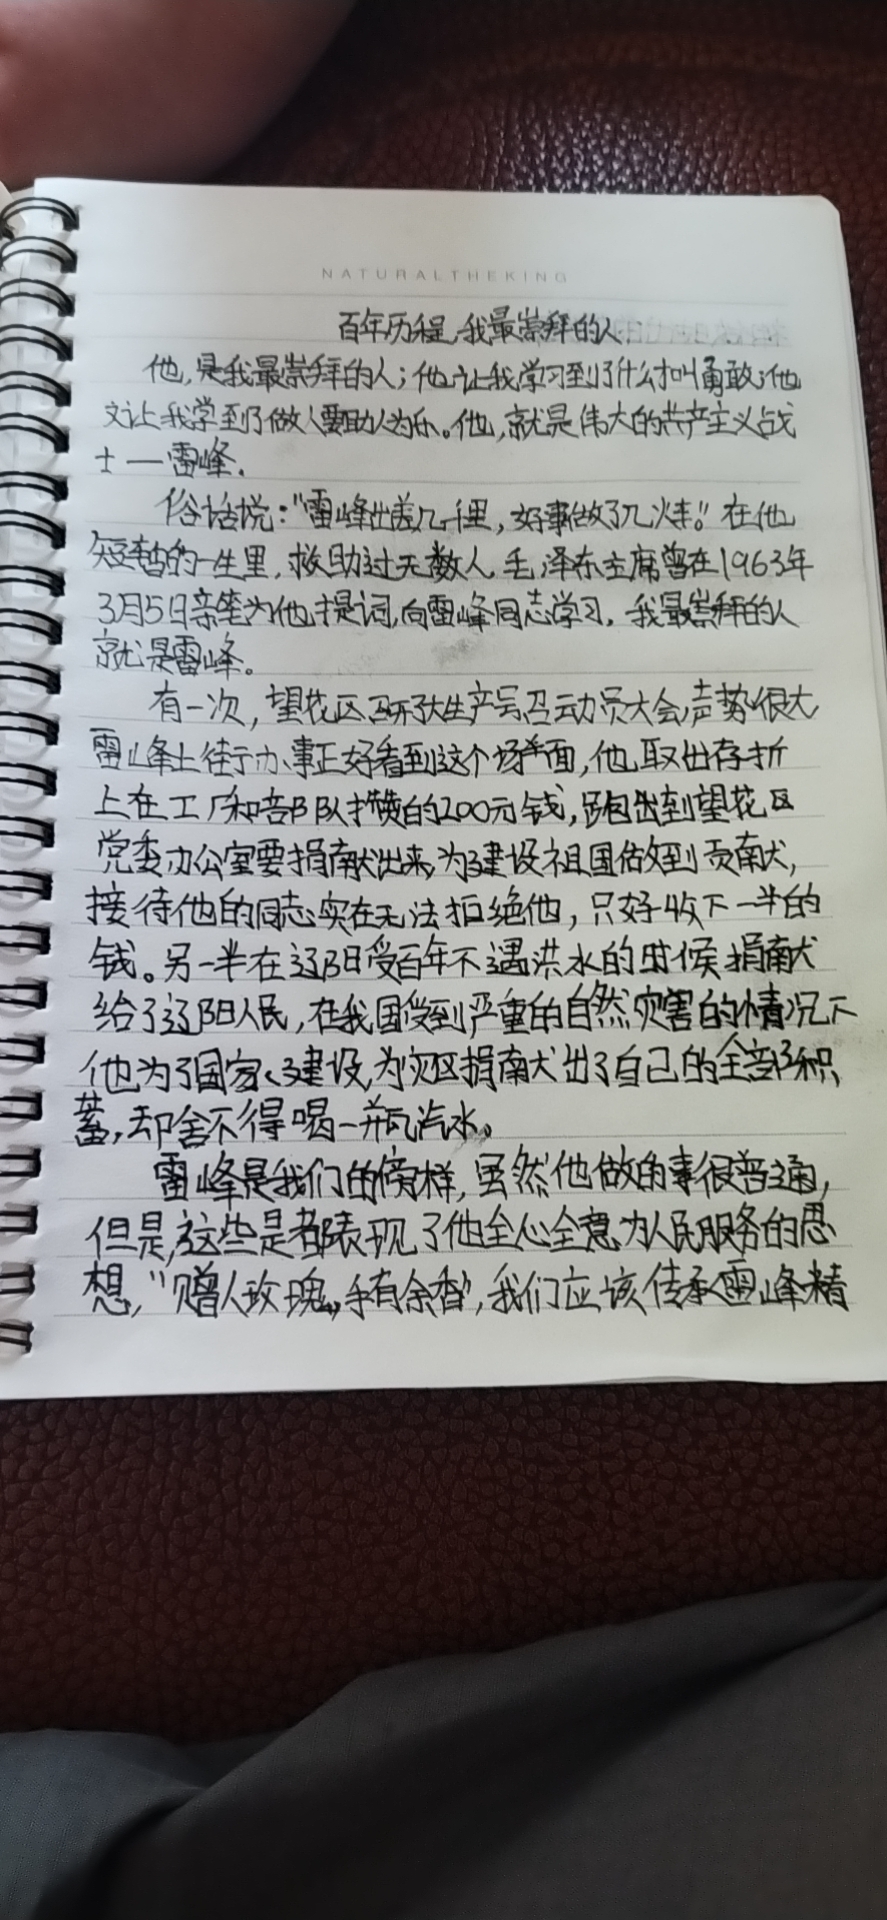 NATURALTHEKING
百年历程,我最崇拜的人
他,是我最崇拜的人;他让我学习到了什么叫勇敢;他
又让我学到了做人要助人为乐。他,就是伟大的共产主义战
士——雷峰.
俗话说:"雷峰出差几千里,好事做了几火车。"在他
短暂的一生里,救助过无数人,毛泽东主席曾在1963年
3月5日亲笔为他提词,向雷峰同志学习,我最崇拜的人
就是雷峰。
有一次,望花区召开了大生产号召动员大会,声势很大
雷峰上街办事正好看到这个场面,他取出存折
上在工厂和部队攒的200元钱,跑出到望花区
党委办公室要捐献出来,为建设祖国做到贡献,
接待他的同志实在无法拒绝他,只好收下一半的
钱。另一半在辽阳受百年不遇洪水的时候捐献
给了辽阳人民,在我国受到严重的自然灾害的情况下
他为了国家、建设,为灾区捐献出了自己的全部积
蓄,却舍不得喝一瓶汽水。
雷峰是我们的榜样,虽然他做的事很普通,
但是,这些是都表现了他全心全意为人民服务的思
想,"赠人玫瑰,手有余香",我们应该传承雷峰精